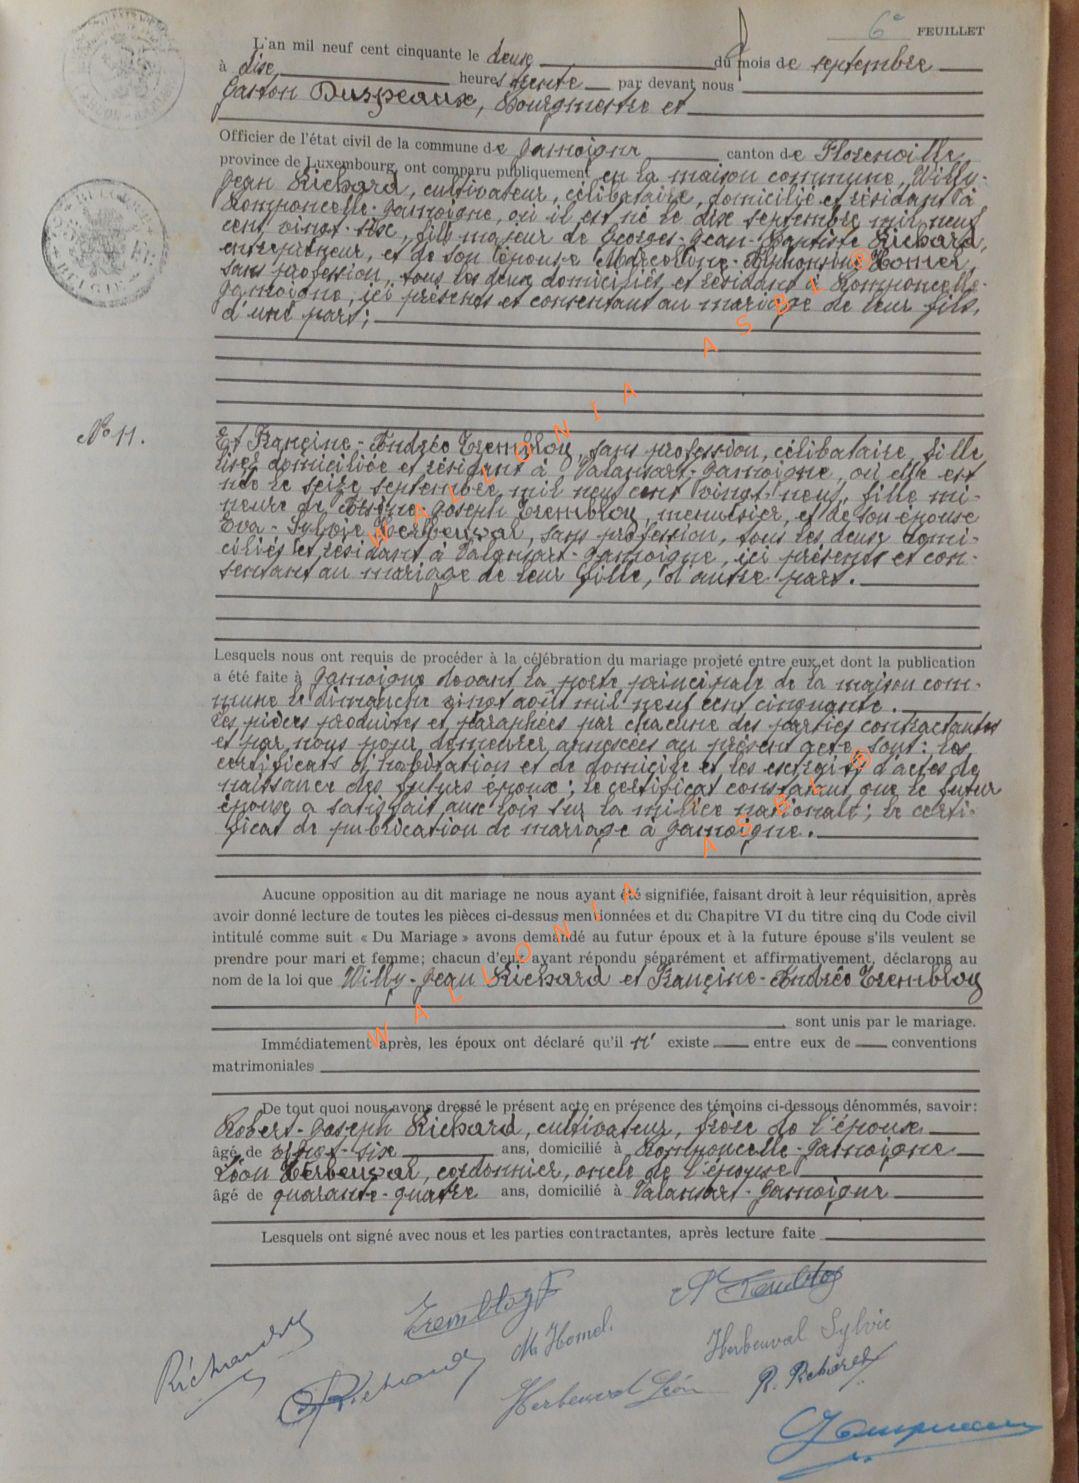 6e FEUILLET
L'an mil neuf cent cinquante le deux du mois de septembre
à dix heures trente par devant nous
Gaston Duspeaux, Bourgmestre et
Officier de l'état civil de la commune de Jamoigne canton de Florenville
province de Luxembourg, ont comparu publiquement en la maison commune, Willy-
Jean Richard, cultivateur, célibataire, domicilié et résidant à
Romponcelle-Jamoigne, où il est né le dix septembre mil neuf
cent vingt-six, fils majeur de Georges-Jean-Baptiste Richard,
entrepreneur, et de son épouse Marceline-Alphonsine Homel,
sans profession, tous les deux domiciliés et résidant à Romponcelle-
Jamoigne, ici présents et consentant au mariage de leur fils,
d'une part;
No 11.
Et Françine-Andrée Trembloy, sans profession, célibataire, fille
domiciliée et résidant à Valansart-Jamoigne, où elle est
née le seize septembre mil neuf cent vingt-neuf, fille mi-
neure de Joseph Trembloy, menuisier, et de son épouse
Eva-Sylvie Herbeuval, sans profession, tous les deux domi-
ciliés et résidant à Valansart-Jamoigne, ici présents et con-
sentant au mariage de leur fille, d'autre part.
Lesquels nous ont requis de procéder à la célébration du mariage projeté entre eux et dont la publication
a été faite à Jamoigne devant la porte principale de la maison com-
mune le dimanche vingt août mil neuf cent cinquante.
Les pièces produites et paraphées par chacune des parties contractantes
et par nous pour demeurer annexées au présent acte, sont: les
certificats d'habitation et de domicile et les extraits d'actes de
naissance des futurs époux; le certificat constatant que le futur
époux a satisfait aux lois sur la milice nationale; le certi-
ficat de publication de mariage à Jamoigne.
Aucune opposition au dit mariage ne nous ayant été signifiée, faisant droit à leur réquisition, après
avoir donné lecture de toutes les pièces ci-dessus mentionnées et du Chapitre VI du titre cinq du Code civil
intitulé comme suit « Du Mariage » avons demandé au futur époux et à la future épouse s'ils veulent se
prendre pour mari et femme; chacun d'eux ayant répondu séparément et affirmativement, déclarons au
nom de la loi que Willy-Jean Richard et Françine-Andrée Trembloy
sont unis par le mariage.
Immédiatement après, les époux ont déclaré qu'il n' existe entre eux de conventions
matrimoniales
De tout quoi nous avons dressé le présent acte en présence des témoins ci-dessous dénommés, savoir:
Robert-Joseph Richard, cultivateur, frère de l'époux
âgé de vingt-six ans, domicilié à Romponcelle-Jamoigne
Léon Herbeuval, cordonnier, oncle de l'épouse
âgé de quarante-quatre ans, domicilié à Valansart-Jamoigne
Lesquels ont signé avec nous et les parties contractantes, après lecture faite
Richard Trembloy F Trembloy
Richard M. Homel. Herbeuval Sylvie
Herbeuval Léon R. Richard
WALLONIA ASBL ®
WALLONIA ASBL ®